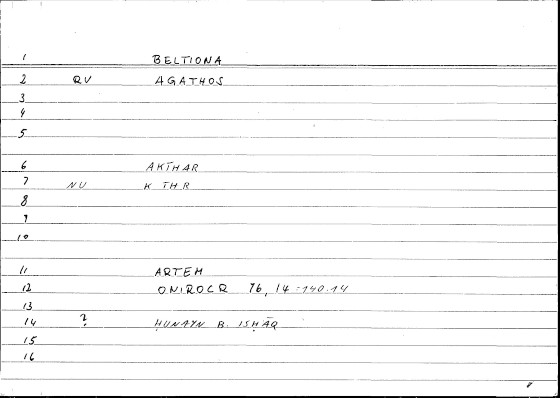 1 BELTIONA
2 QV AGATHOS
3
4
5
6 AKTHAR
7 NU K TH R
8
9
10
11 ARTEM
12 ONIROCR 76, 14 = 140.14
13
14 ? ḤUNAYN B. ISḤĀQ
15
16